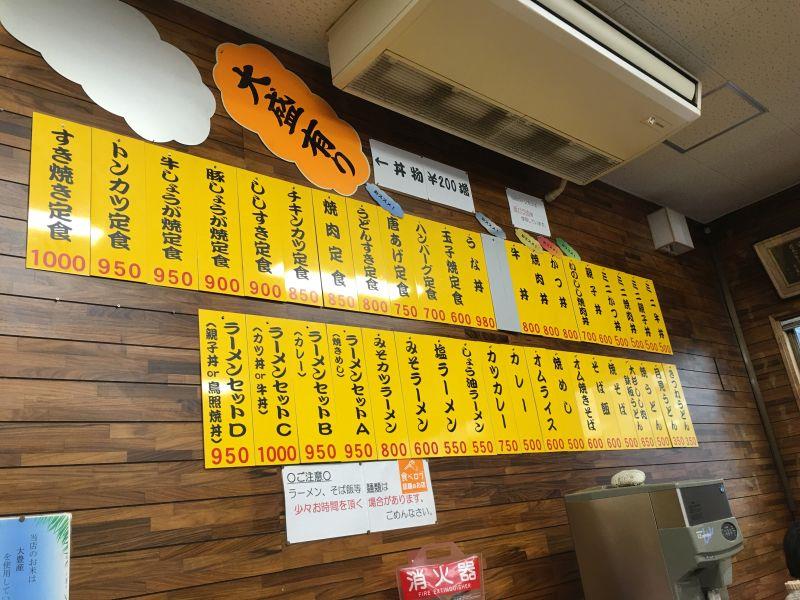 大盛有り
←丼物￥200増
すき焼き定食 1000
トンカツ定食 950
牛しょうが焼定食 950
豚しょうが焼定食 900
ししすき定食 900
チキンカツ定食 850
焼肉定食 850
うどんすき定食 800
唐あげ定食 750
ハンバーグ定食 700
玉子焼定食 600
うな丼 980
牛丼 800
焼肉丼 800
かつ丼 800
いのしし焼肉丼 700
親子丼 600
ミニかつ丼 500
ミニ焼肉丼 500
ミニ親子丼 500
ミニ牛丼 500
ラーメンセットD (親子丼or鳥照焼丼) 950
ラーメンセットC (カツ丼or牛丼) 1000
ラーメンセットB (カレー) 950
ラーメンセットA (焼きめし) 950
みそカツラーメン 800
みそラーメン 600
塩ラーメン 550
しょう油ラーメン 550
カツカレー 750
カレー 500
オムライス 600
焼めし 500
オム焼きそば 600
そば飯 600
焼そば 500
大杉しし肉鉄板うどん 650
焼うどん 500
月見うどん 350
きつねうどん 350
〇ご注意〇
ラーメン、そば飯等 麺類は
少々お時間を頂く 場合があります。
ごめんなさい。
食べログ
話題のお店
消火器
FIRE EXTINGUISHER
当店のお米は
大豊産
を使用してい